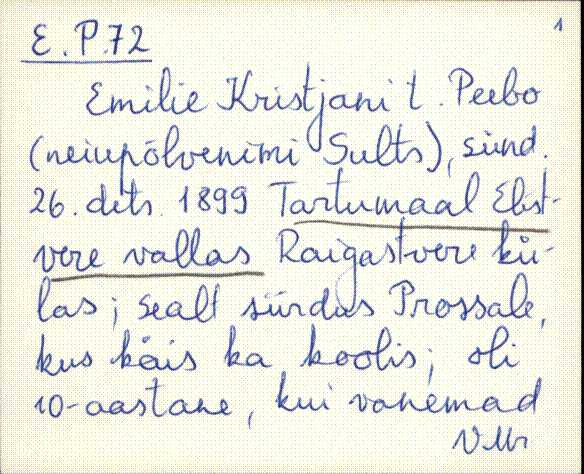 1
E.P.72
Emilie Kristjani t. Peebo
(neiupõlvenimi Sults), sünd.
26. dets. 1899 Tartumaal Elist-
vere vallas Raigastvere kü-
las; sealt siirdus Prossale,
kus käis ka koolis; oli
10-aastane, kui vanemad
VMr